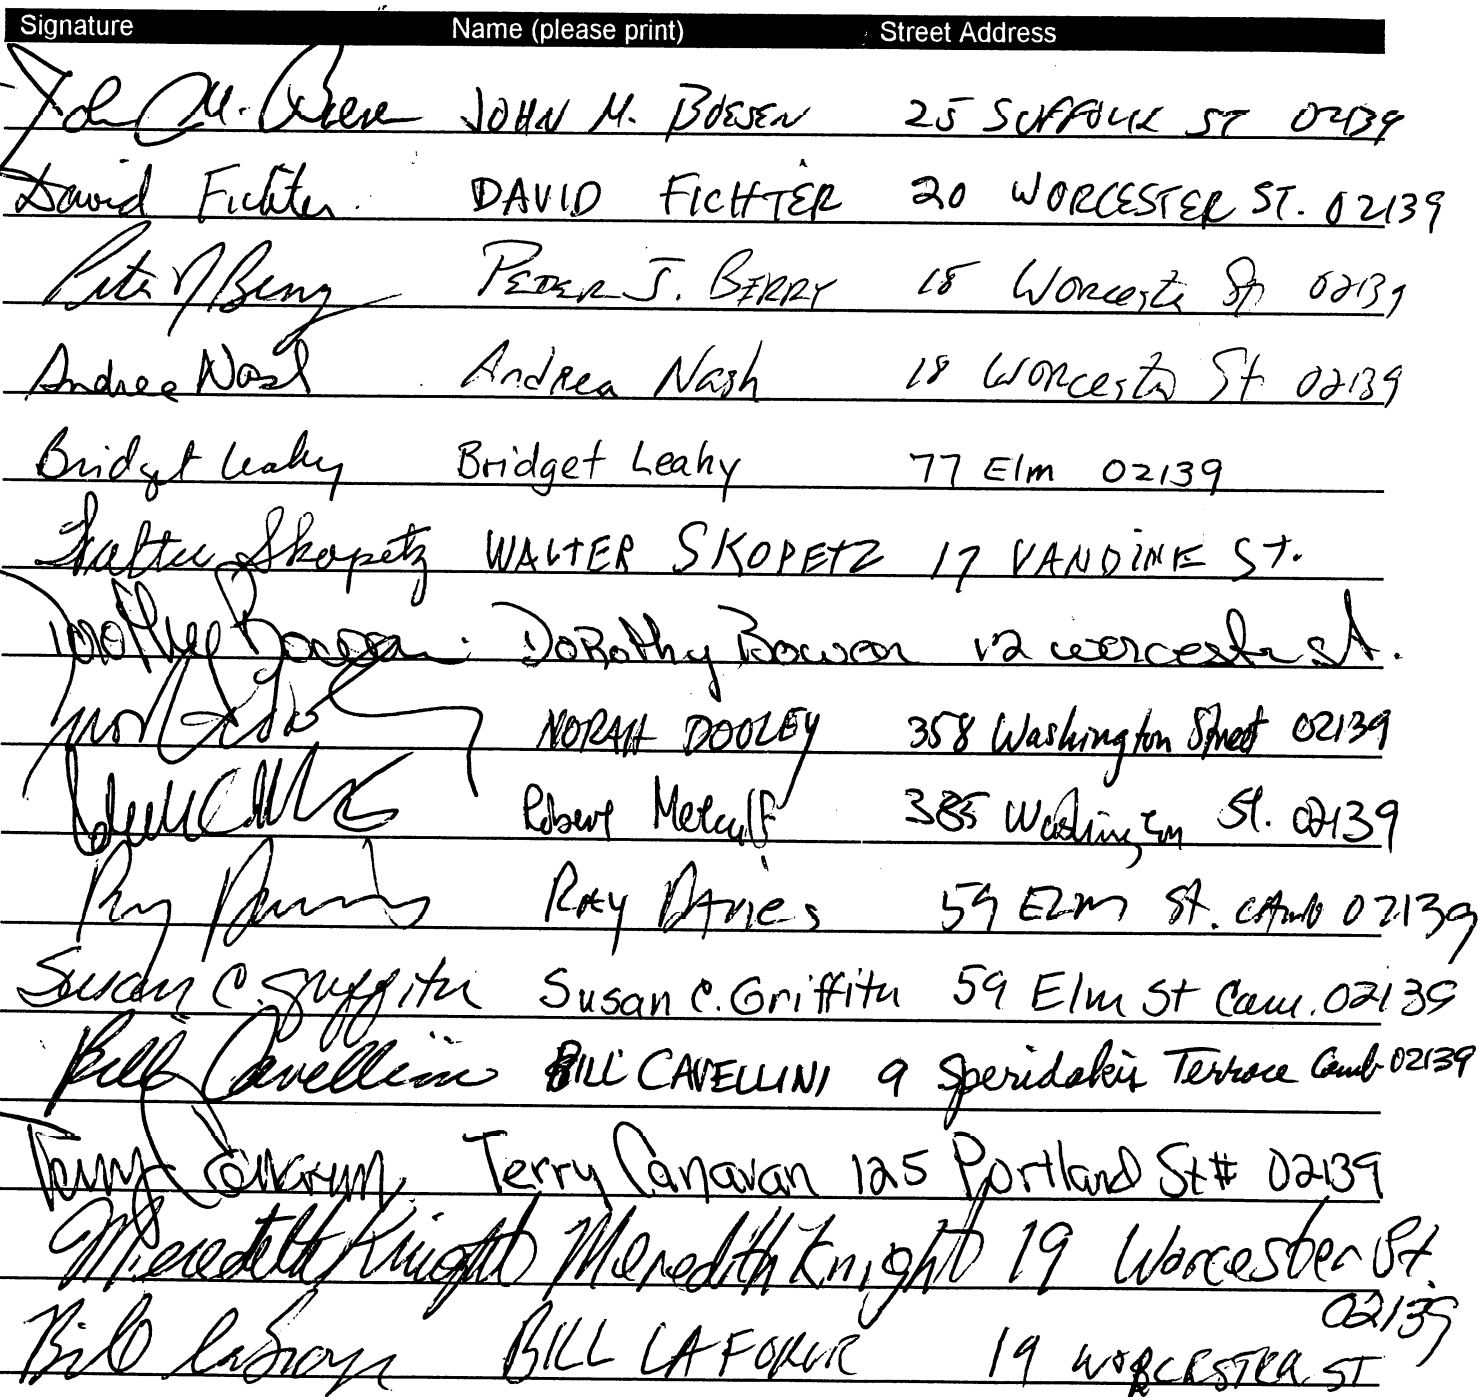 Signature Name (please print) Street Address
John M. Boesen JOHN M. BOESEN 25 SUFFOLK ST 02139
David Fichter DAVID FICHTER 20 WORCESTER ST. 02139
Peter J Berry PETER J. BERRY 18 Worceste St 02139
Andrea Nash Andrea Nash 18 Worcester St 02139
Bridget Leahy Bridget Leahy 77 Elm 02139
Walter Skopetz WALTER SKOPETZ 17 VANDINE ST.
Dorothy Bowen Dorothy Bowen 12 worcester st.
NORAH DOOLEY 358 Washington Street 02139
Robert Metcalf 385 Washington St. 02139
Ray Davies Ray Davies 59 Elm St. Camb 02139
Susan C. Griffith Susan C. Griffith 59 Elm St Cam. 02139
Bill Cavellini BILL CAVELLINI 9 Speridakis Terrace Camb 02139
Terry Canavan Terry Canavan 125 Portland St # 02139
Meredith Knight Meredith Knight 19 Worcester St.
02139
Bill BILL 19 WORCESTER ST